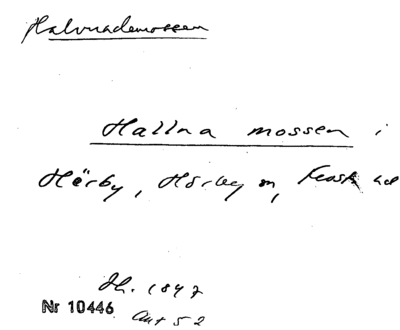 Halvnademossen
Hallna mossen i
Hörby, Hörby sn, Frosta hd
Jh. 1847
Nr 10446
Ant 52